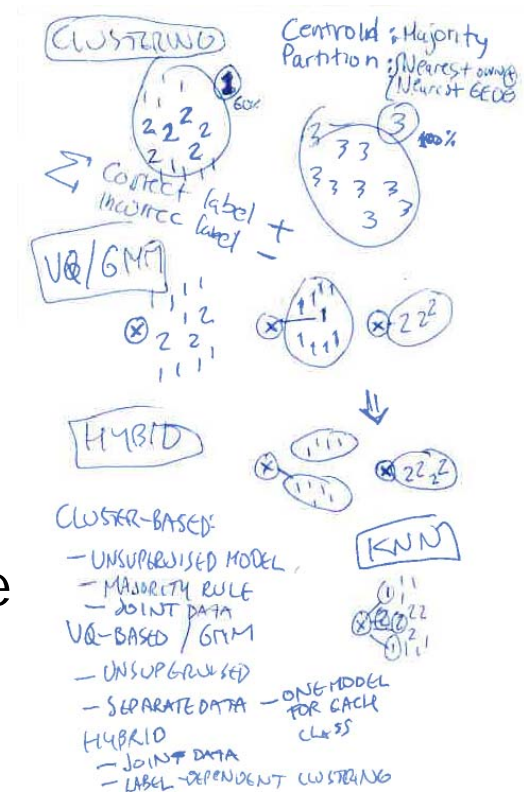 CLUSTERING
Centroid : Majority
Partition : Nearest owng
Nearest GEOG
1
60%
1 1 1
2 2 2 2
2 2
1 1 1 1 1
3
100%
3
3 3
3 3 3 3
3 3
Σ Correct label +
Incorrec label -
VQ/GMM
1 1 1 1
1 1 2
x 2 2
1 1 1 1
x 1 1 1 1
1
1 1 1 1
x 2 2 2
HYBID
x 1 1 1 1
1 1 1 1
x 2 2 2 2
CLUSTER-BASED:
- UNSUPERVISED MODEL
- MAJORITY RULE
- JOINT DATA
VQ-BASED / GMM
- UNSUPERVISED
- SEPARATE DATA - ONE MODEL
FOR EACH
CLASS
HYBRID
- JOINT DATA
- LABEL-DEPENDENT CLUSTERING
KNN
1 1 1
x 2 2 2 2
1 1 1 2
e